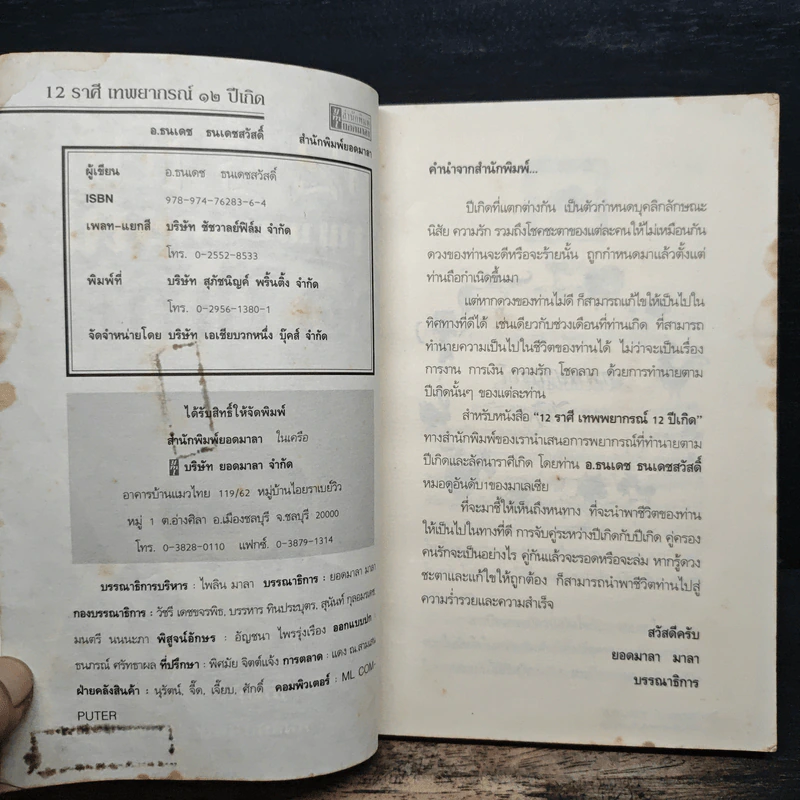 12 ราศี เทพยากรณ์ ๑๒ ปีเกิด
สำนักพิมพ์
ยอดมาลา
อ.ธนเดช ธนเดชสวัสดิ์
สำนักพิมพ์ยอดมาลา
ผู้เขียน อ.ธนเดช ธนเดชสวัสดิ์
ISBN 978-974-76283-6-4
เพลท-แยกสี บริษัท ชัชวาลย์ฟิล์ม จำกัด
โทร. 0-2552-8533
พิมพ์ที่ บริษัท สุภัชนิญค์ พริ้นติ้ง จำกัด
โทร. 0-2956-1380-1
จัดจำหน่ายโดย บริษัท เอเชียบวกหนึ่ง บุ๊คส์ จำกัด
ได้รับสิทธิ์ให้จัดพิมพ์
สำนักพิมพ์ยอดมาลา ในเครือ
บริษัท ยอดมาลา จำกัด
อาคารบ้านแมวไทย 119/62 หมู่บ้านไอยราเบย์วิว
หมู่ 1 ต.อ่างศิลา อ.เมืองชลบุรี จ.ชลบุรี 20000
โทร. 0-3828-0110 แฟกซ์. 0-3879-1314
บรรณาธิการบริหาร : ไพลิน มาลา บรรณาธิการ : ยอดมาลา มาลา
กองบรรณาธิการ : วัชรี เดชขจรพิช, บรรหาร ทินประบุตร, สุนันท์
มนตรี นนนะภา พิสูจน์อักษร : อัญชนา ไพรรุ่งเรือง ออกแบบปก
ธนภรณ์ ศรัทธาผล ที่ปรึกษา : พิศมัย จิตต์แจ้ง การตลาด : แดง
ฝ่ายคลังสินค้า : นุรัตน์, จี๊ด, เจี๊ยบ, ศักดิ์ คอมพิวเตอร์ : ML COM-
PUTER
คำนำจากสำนักพิมพ์...
ปีเกิดที่แตกต่างกัน เป็นตัวกำหนดบุคลิกลักษณะ
นิสัย ความรัก รวมถึงโชคชะตาของแต่ละคนให้ไม่เหมือนกัน
ดวงของท่านจะดีหรือจะร้ายนั้น ถูกกำหนดมาแล้วตั้งแต่
ท่านถือกำเนิดขึ้นมา
แต่หากดวงของท่านไม่ดี ก็สามารถแก้ไขให้เป็นไปใน
ทิศทางที่ดีได้ เช่นเดียวกับช่วงเดือนที่ท่านเกิด ที่สามารถ
ทำนายความเป็นไปในชีวิตของท่านได้ ไม่ว่าจะเป็นเรื่อง
การงาน การเงิน ความรัก โชคลาภ ด้วยการทำนายตาม
ปีเกิดนั้นๆ ของแต่ละท่าน
สำหรับหนังสือ “12 ราศี เทพพยากรณ์ 12 ปีเกิด”
ทางสำนักพิมพ์ของเรานำเสนอการพยากรณ์ที่ทำนายตาม
ปีเกิดและลัคนาราศีเกิด โดยท่าน อ.ธนเดช ธนเดชสวัสดิ์
หมอดูอันดับ1ของมาเลเซีย
ที่จะมาชี้ให้เห็นถึงหนทาง ที่จะนำพาชีวิตของท่าน
ให้เป็นไปในทางที่ดี การจับคู่ระหว่างปีเกิดกับปีเกิด คู่ครอง
คนรักจะเป็นอย่างไร คู่กันแล้วจะรอดหรือจะล่ม หากรู้ดวง
ชะตาและแก้ไขให้ถูกต้อง ก็สามารถนำพาชีวิตท่านไปสู่
ความร่ำรวยและความสำเร็จ
สวัสดีครับ
ยอดมาลา มาลา
บรรณาธิการ